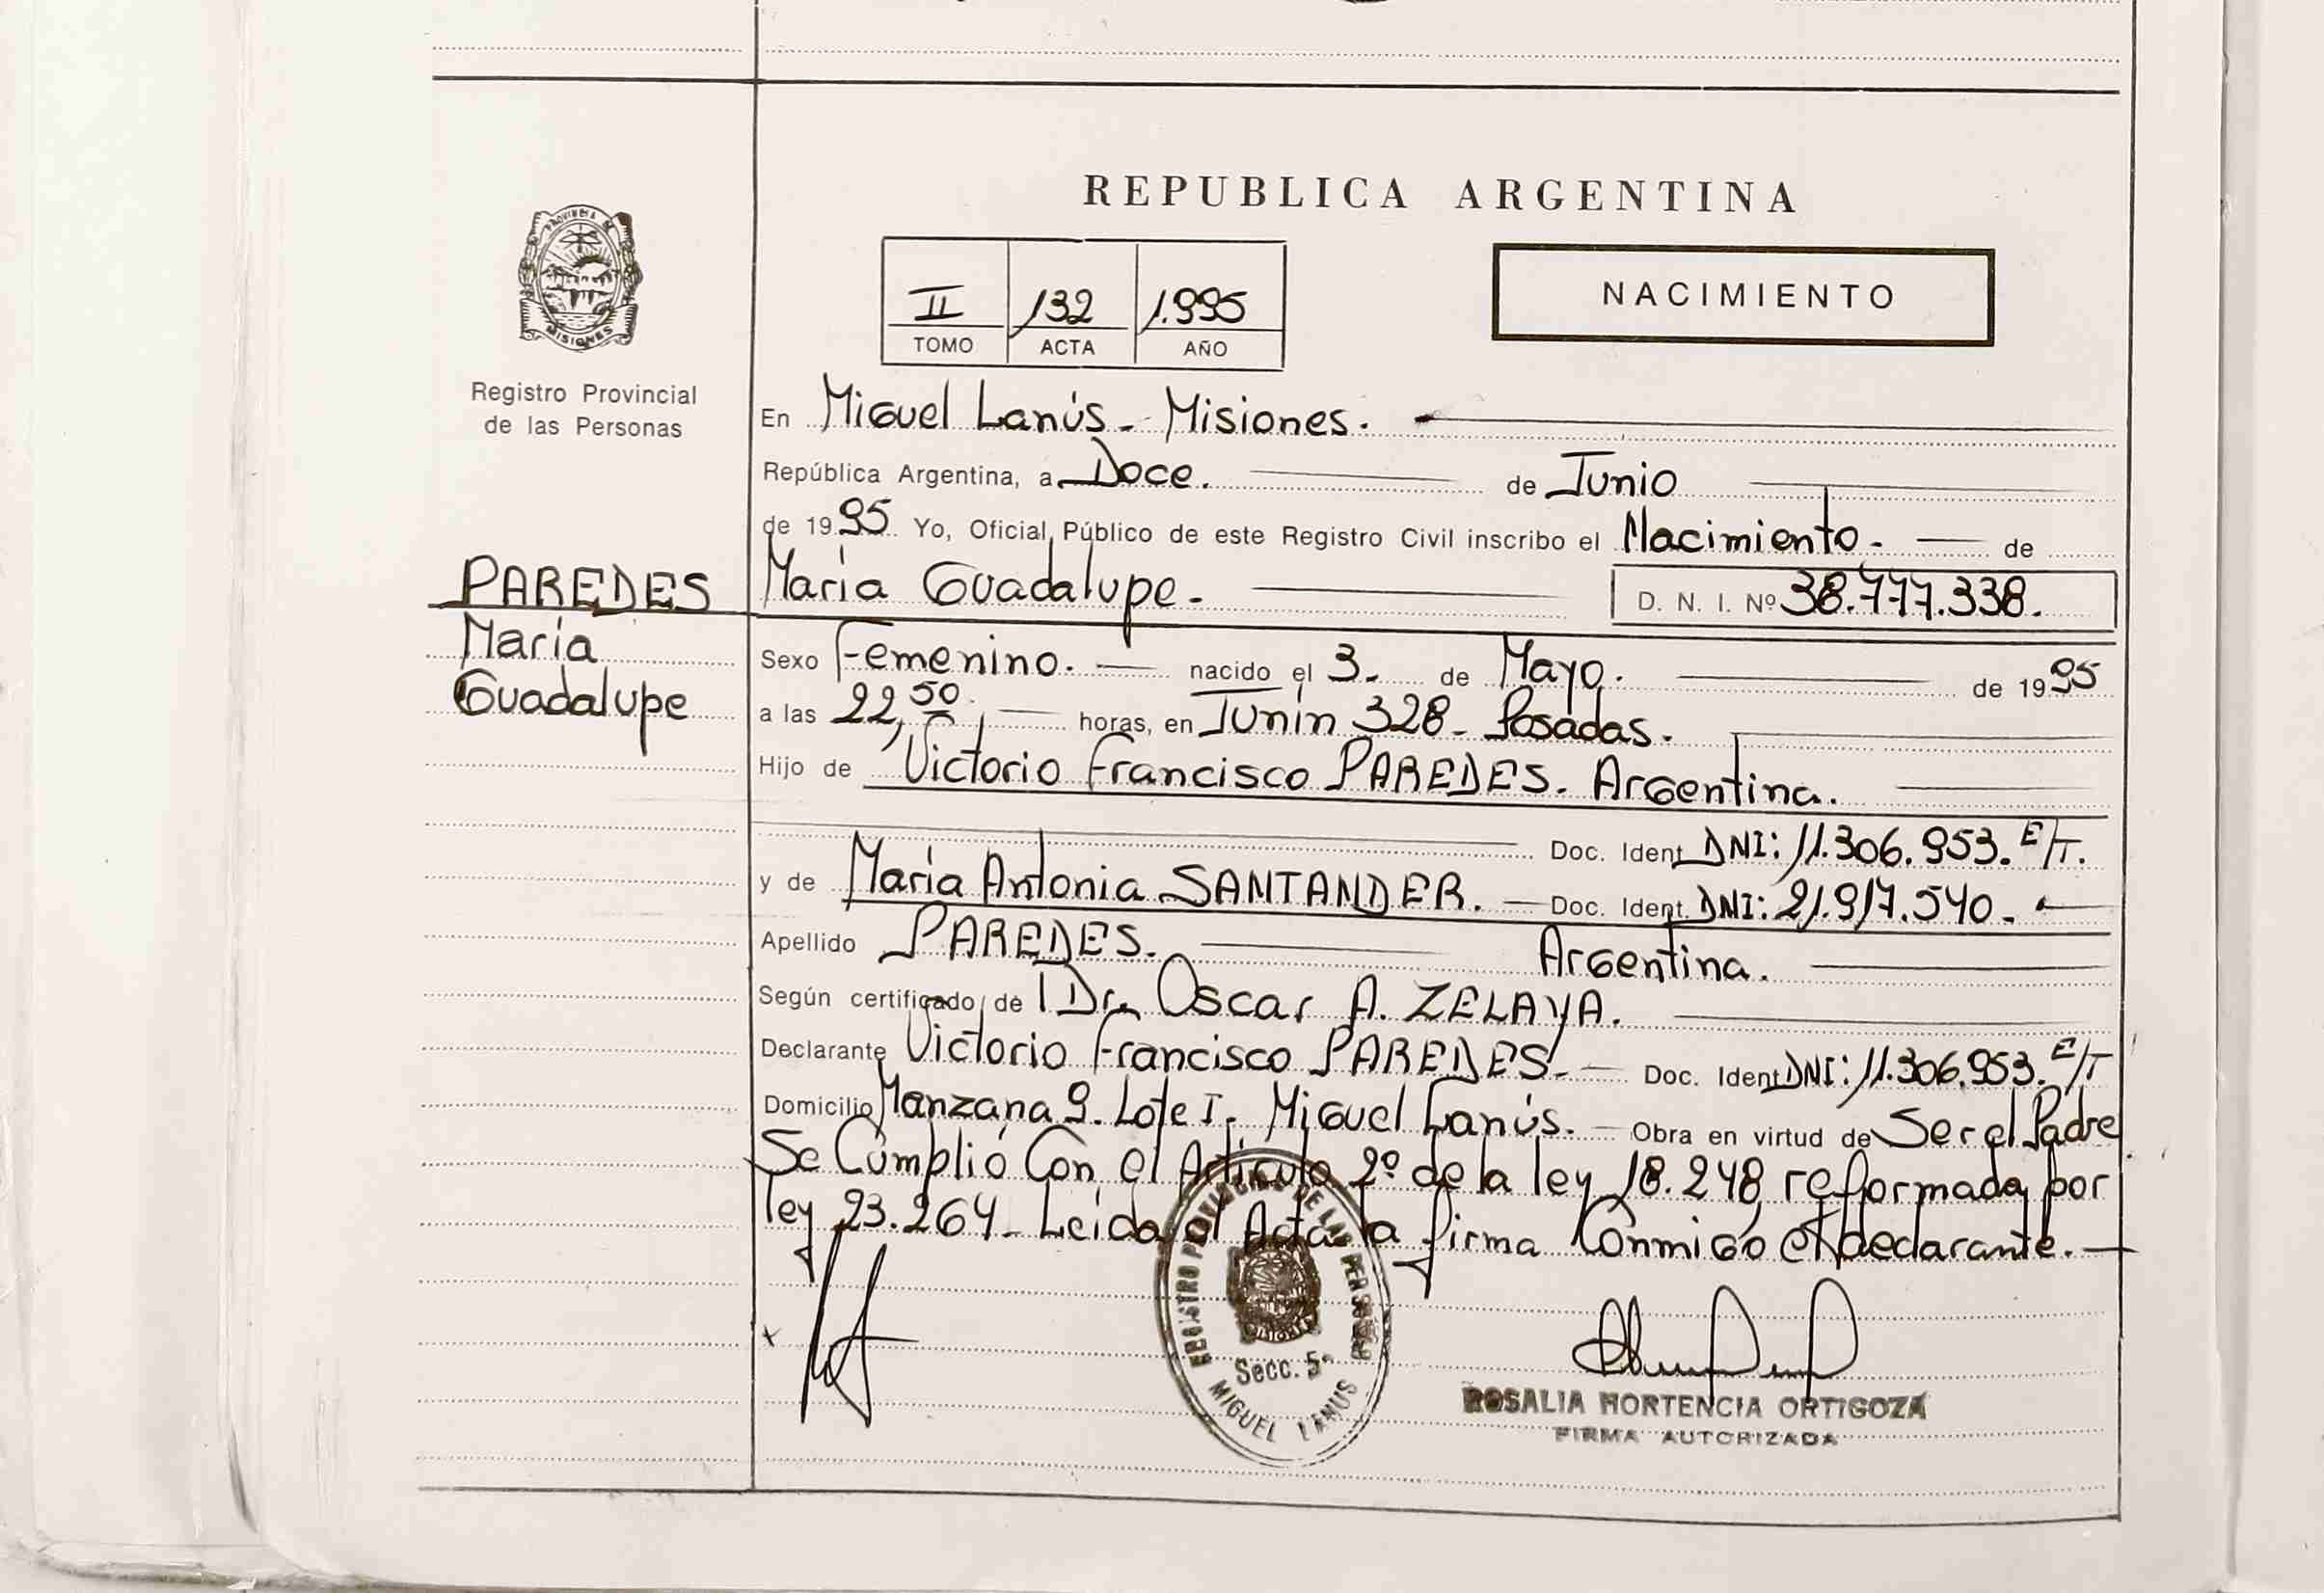 REPUBLICA ARGENTINA
PROVINCIA DE
MISIONES
II 132 1.995
TOMO ACTA AÑO
NACIMIENTO
Registro Provincial
de las Personas
En Miguel Lanús - Misiones.
República Argentina, a Doce. de Junio
de 1995 Yo, Oficial Público de este Registro Civil inscribo el Nacimiento. de
PAREDES
María
Guadalupe
María Guadalupe. D. N. I. Nº 38.777.338.
Sexo Femenino. nacido el 3. de Mayo. de 1995
a las 22,50 horas, en Junín 328 - Posadas.
Hijo de Victorio Francisco PAREDES. Argentina.
Doc. Ident. DNI: 11.306.953. E/T.
y de María Antonia SANTANDER. - Doc. Ident. DNI: 21.917.540.
Apellido PAREDES. Argentina.
Según certificado de Dr. Oscar A. ZELAYA.
Declarante Victorio Francisco PAREDES. - Doc. Ident DNI: 11.306.953. E/T
Domicilio Manzana 9. Lote I. Miguel Lanús. - Obra en virtud de Ser el Padre
Se Cumplió Con el Artículo 2º de la ley 18.248 reformada por
ley 23.264 - Leída el Acta la firma Conmigo el declarante. -
REGISTRO PROVINCIAL DE LAS PERSONAS
MISIONES
Secc. 5ª
MIGUEL LANUS
ROSALIA HORTENCIA ORTIGOZA
FIRMA AUTORIZADA